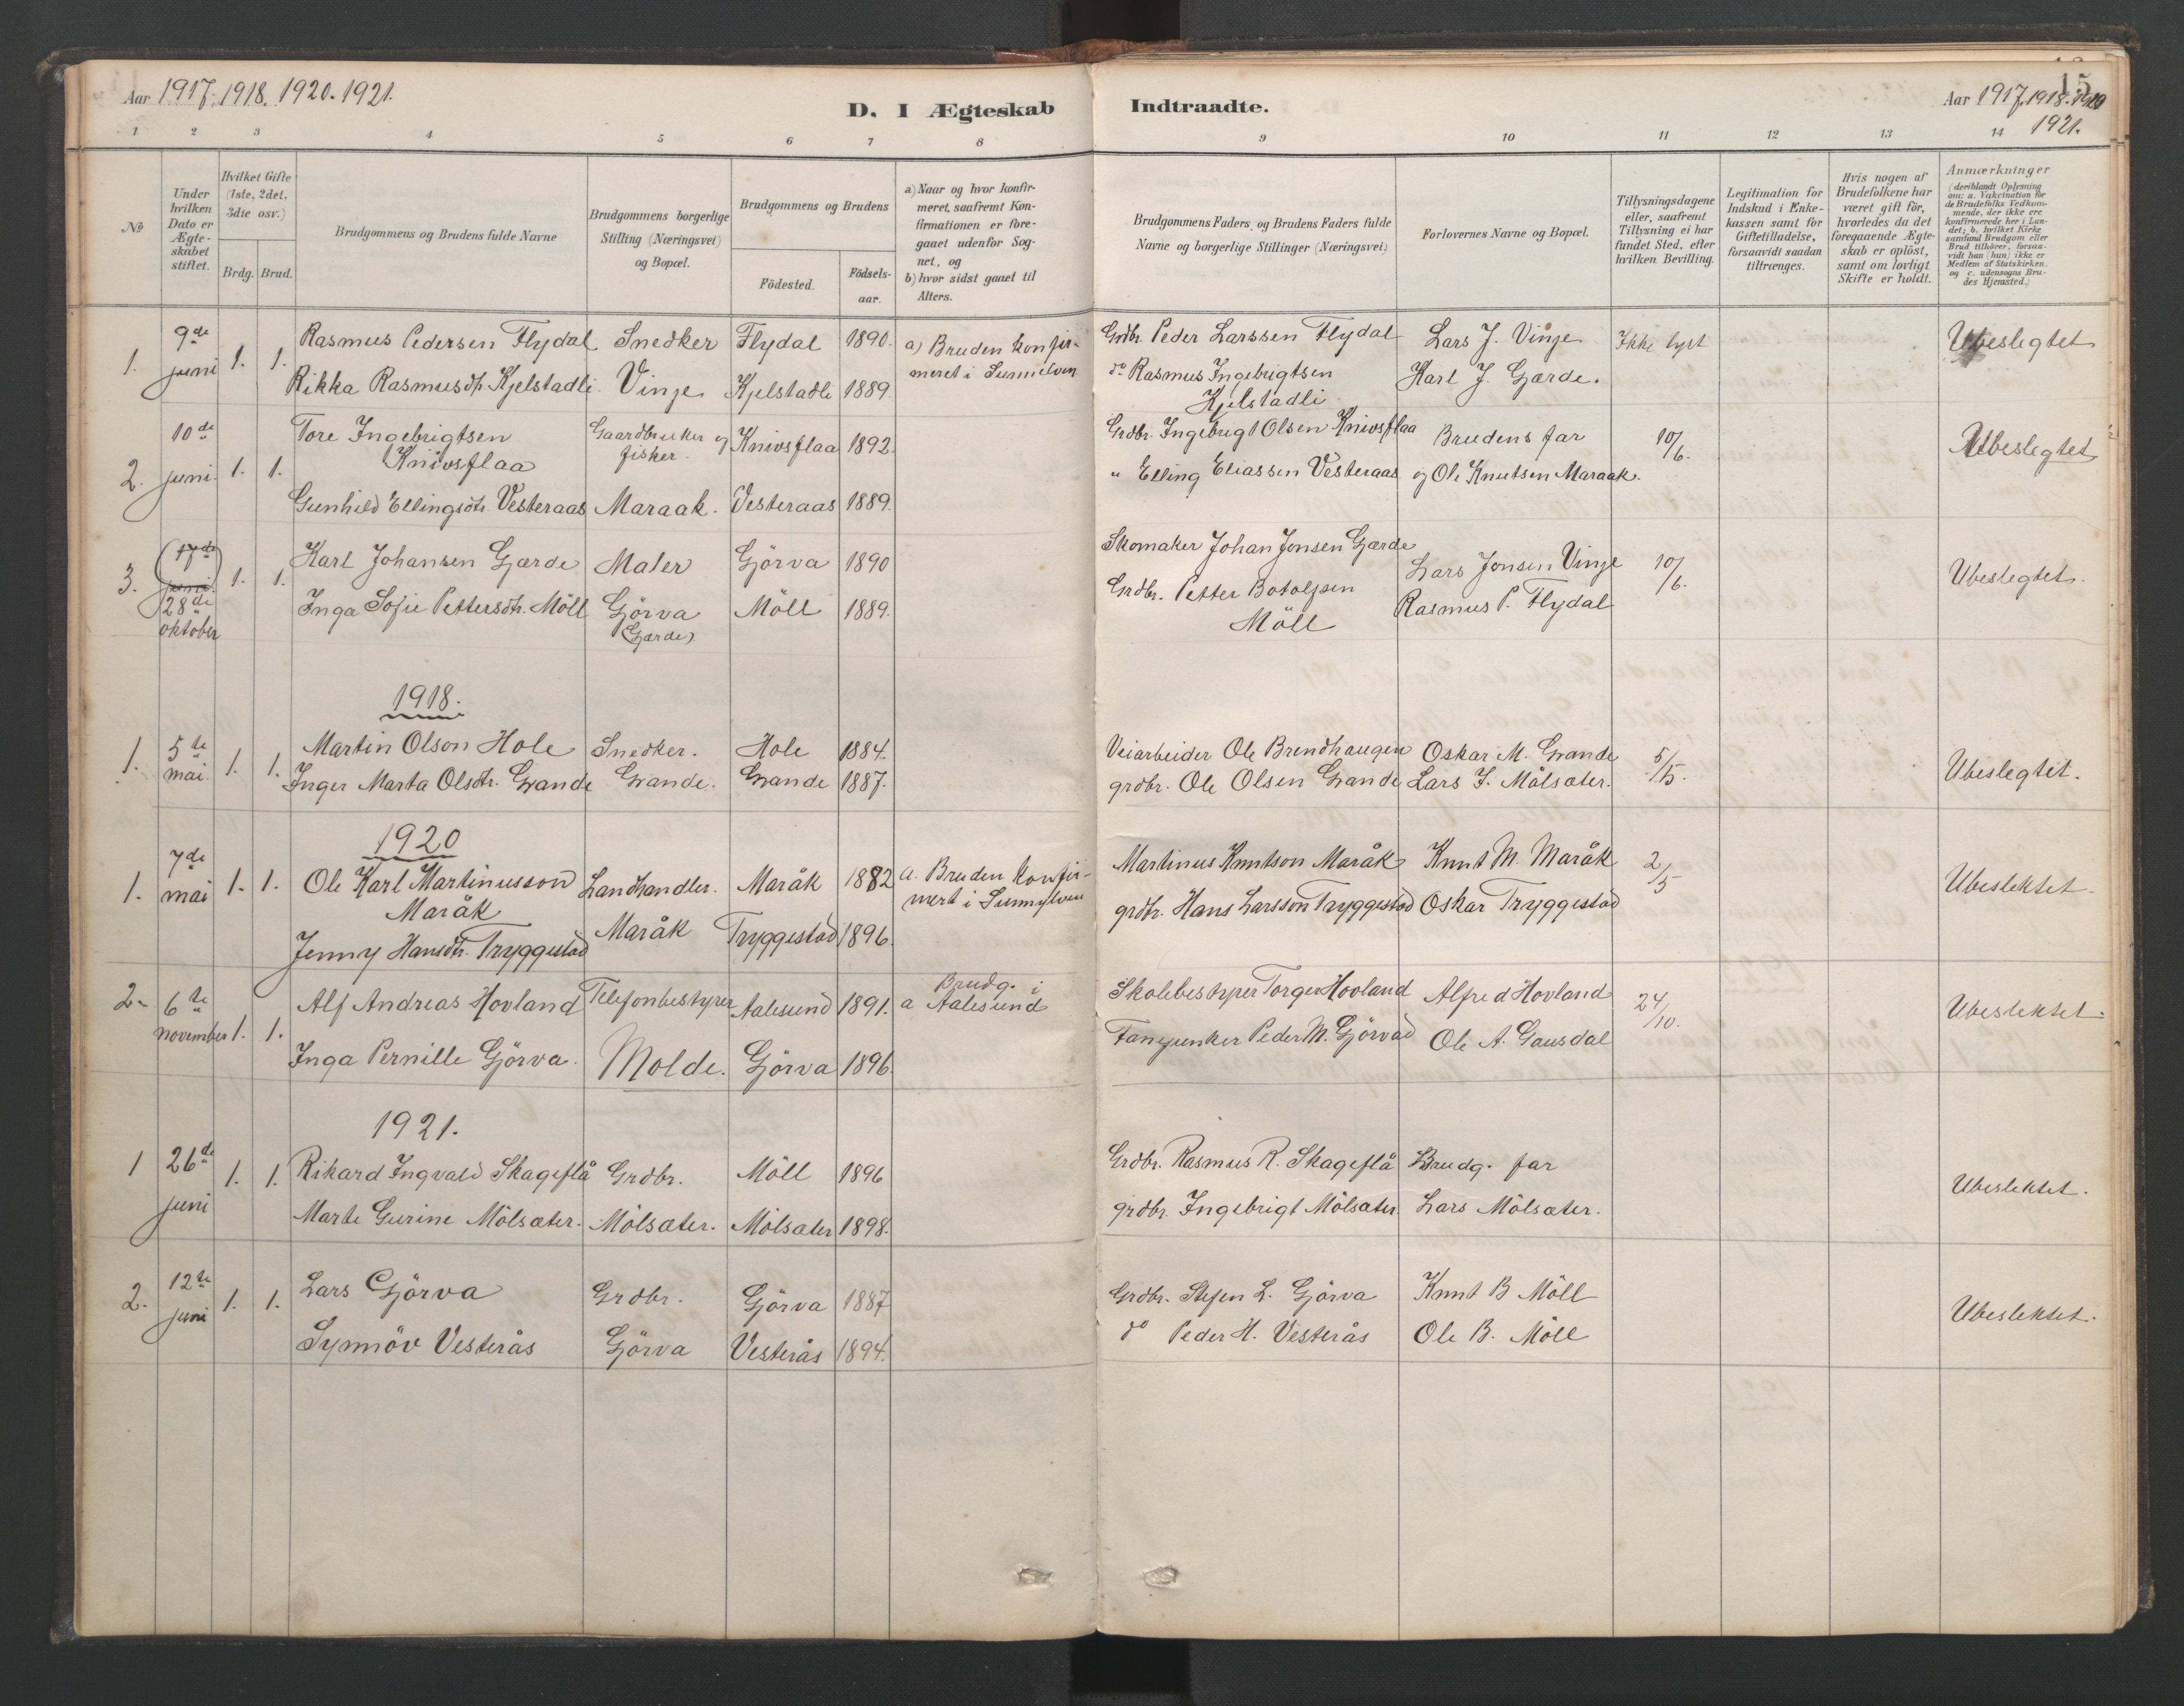 Aar 1917. 1918. 1920. 1921.
D. I Ægteskab
Indtraadte.
15
Aar 1917. 1918. 1920
1921.
1 2 3 4 5 6 7 8 9 10 11 12 13 14
No
Under
hvilken
Dato er
Ægte-
skabet
stiftet.
Hvilket Gifte
(1ste, 2det,
3die osv.)
Brdg. Brud.
Brudgommens og Brudens fulde Navne
Brudgommens borgerlige
Stilling (Næringsvei)
og Bopæl.
Brudgommens og Brudens
Födested.
Födsels-
aar.
a) Naar og hvor konfir-
meret, saafremt Kon-
firmationen er fore-
gaaet udenfor Sog-
net, og
b) hvor sidst gaaet til
Alters.
Brudgommens Faders og Brudens Faders fulde
Navne og borgerlige Stillinger (Næringsvei)
Forlovernes Navne og Bopæl.
Tillysningsdagene
eller, saafremt
Tillysning ei har
fundet Sted, efter
hvilken Bevilling.
Legitimation for
Indskud i Enke-
kassen samt for
Giftetilladelse,
forsaavidt saadan
tiltrænges.
Hvis nogen af
Brudefolkene har
været gift för,
hvorledes da det
foregaaende Ægte-
skab er oplöst,
samt om lovligt
Skifte er holdt.
Anmærkninger
(deriblandt Oplysning
om: a. Vakcination for
de Brudefolks Vedkom-
mende, der ikke ere
konfirmerede her i Lan-
det; b. hvilket Kirke
samfund Brudgom eller
Brud tilhörer, forsaa-
vidt han (hun) ikke er
Medlem af Statskirken,
og c. udensogns Bru-
des Hjemsted.)
1. 9de juni 1. 1. Rasmus Pedersen Flydal Snedker Flydal 1890. a) Bruden konfir- Grdbr. Peder Larssen Flydal Lars J. Vinje Ikke lyst Ubeslegtet
Rikka Rasmusdtr. Kjelstadli Vinje Kjelstadli 1889. meret i Sunnelven do Rasmus Ingebrigtsen Karl J. Gjærde.
Kjelstadli
2. 10de juni. 1. 1. Tore Ingebrigtsen Gaardbruker og Knivsflaa 1892. Grdbr. Ingebrigt Olsen Knivsflaa Brudens far 10/6. Ubeslegtet
Knivsflaa fisker.
Gunhild Ellingsdtr. Vesteraas Maraak. Vesteraas 1889. " Elling Eliassen Vesteraas og Ole Knutsen Maraak.
3. (17de juni) 28de oktober 1. 1. Karl Johansen Gjærde Maler Gjörva 1890 Skomaker Johan Jonsen Gjærde Lars Jonsen Vinje 10/6. Ubeslegtet.
Inga Sofie Pettersdtr. Möll Gjörva Möll 1889. Grdbr. Petter Botolfsen Rasmus P. Flydal
(Gjærde) Möll
1918.
1. 5te mai. 1. 1. Martin Olson Hole Snedker. Hole 1884. Veiarbeider Ole Brendhaugen Oskar M. Grande 5/5. Ubeslegtet.
Inger Marta Olsdtr. Grande Grande. Grande 1887. grdbr. Ole Olsen Grande Lars J. Mölsæter.
1920
1. 7de mai 1. 1. Ole Karl Martinusson Landhandler. Maråk 1882 a. Bruden konfir- Martinus Knutson Maråk Knut M. Maråk 2/5 Ubeslektet.
Maråk mert i Sunnylven
Jenny Hansdtr. Tryggestad Maråk Tryggestad 1896. grdbr. Hans Larsson Tryggestad Oskar Tryggestad
2. 6te november 1. 1. Alf Andreas Hovland Telefonbestyrer Aalesund 1891. a Brudg. i Aalesund Skolebestyrer Torger Hovland Alfred Hovland 24/10. Ubeslektet.
Inga Pernille Gjörva. Molde. Gjörva 1896. Fanejunker Peder M. Gjörvad Ole A. Gausdal
1921.
1 26de juni 1. 1. Rikard Ingvald Skageflå Grdbr. Möll 1896 Grdbr. Rasmus R. Skageflå Brudg. far Ubeslektet.
Marte Gurine Mölsæter. Mölsæter. Mölsæter 1898. grdbr. Ingebrigt Mölsæter. Lars Mölsæter.
2. 12te juni 1. 1. Lars Gjörva Grdbr. Gjörva 1887 Grdbr. Stefen L. Gjörva Knut B Möll Ubeslektet.
Synnöv Vesterås Gjörva Vesterås 1894. do Peder H. Vesterås Ole B. Möll